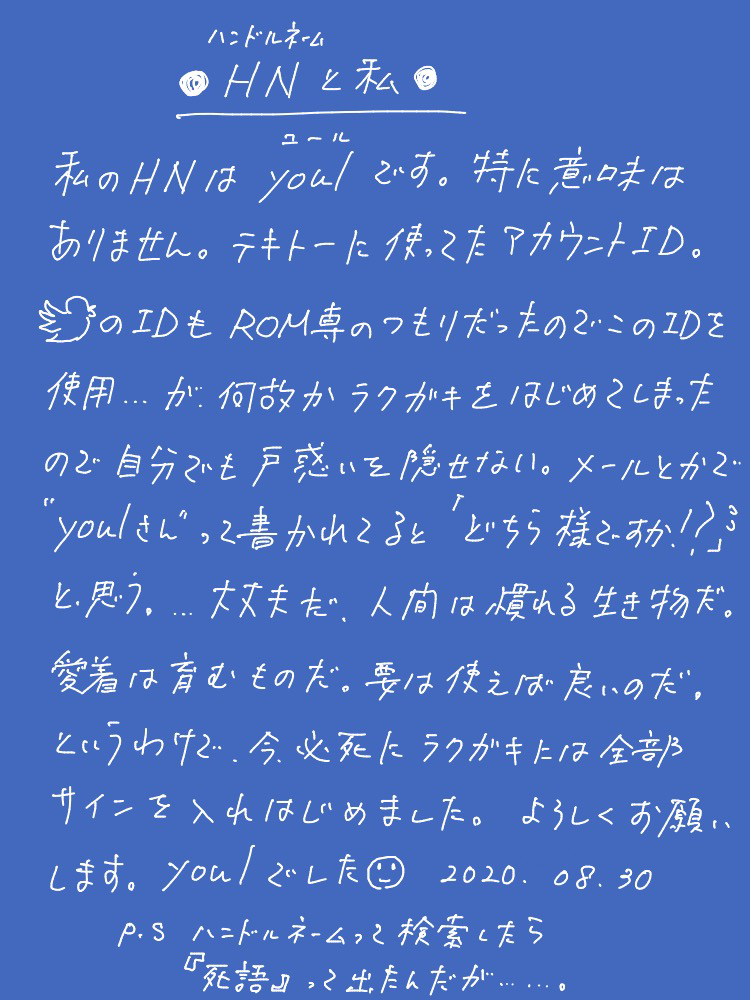 ハンドルネーム
●HNと私●
ユール
私のHNはyoulです。特に意味は
ありません。テキトーに使ってたアカウントID。
のIDもROM専のつもりだったのでこのIDを
使用…が、何故かラクガキをはじめてしまった
ので自分でも戸惑いを隠せない。メールとかで
"youlさん"って書かれてると「どちら様ですか!?」
と、思う。…大丈夫だ、人間は慣れる生き物だ。
愛着は育むものだ。要は使えば良いのだ。
というわけで、今、必死にラクガキには全部
サインを入れはじめました。よろしくお願い
します。youlでした 2020.08.30
P.S ハンドルネームって検索したら
『死語』って出たんだが……。